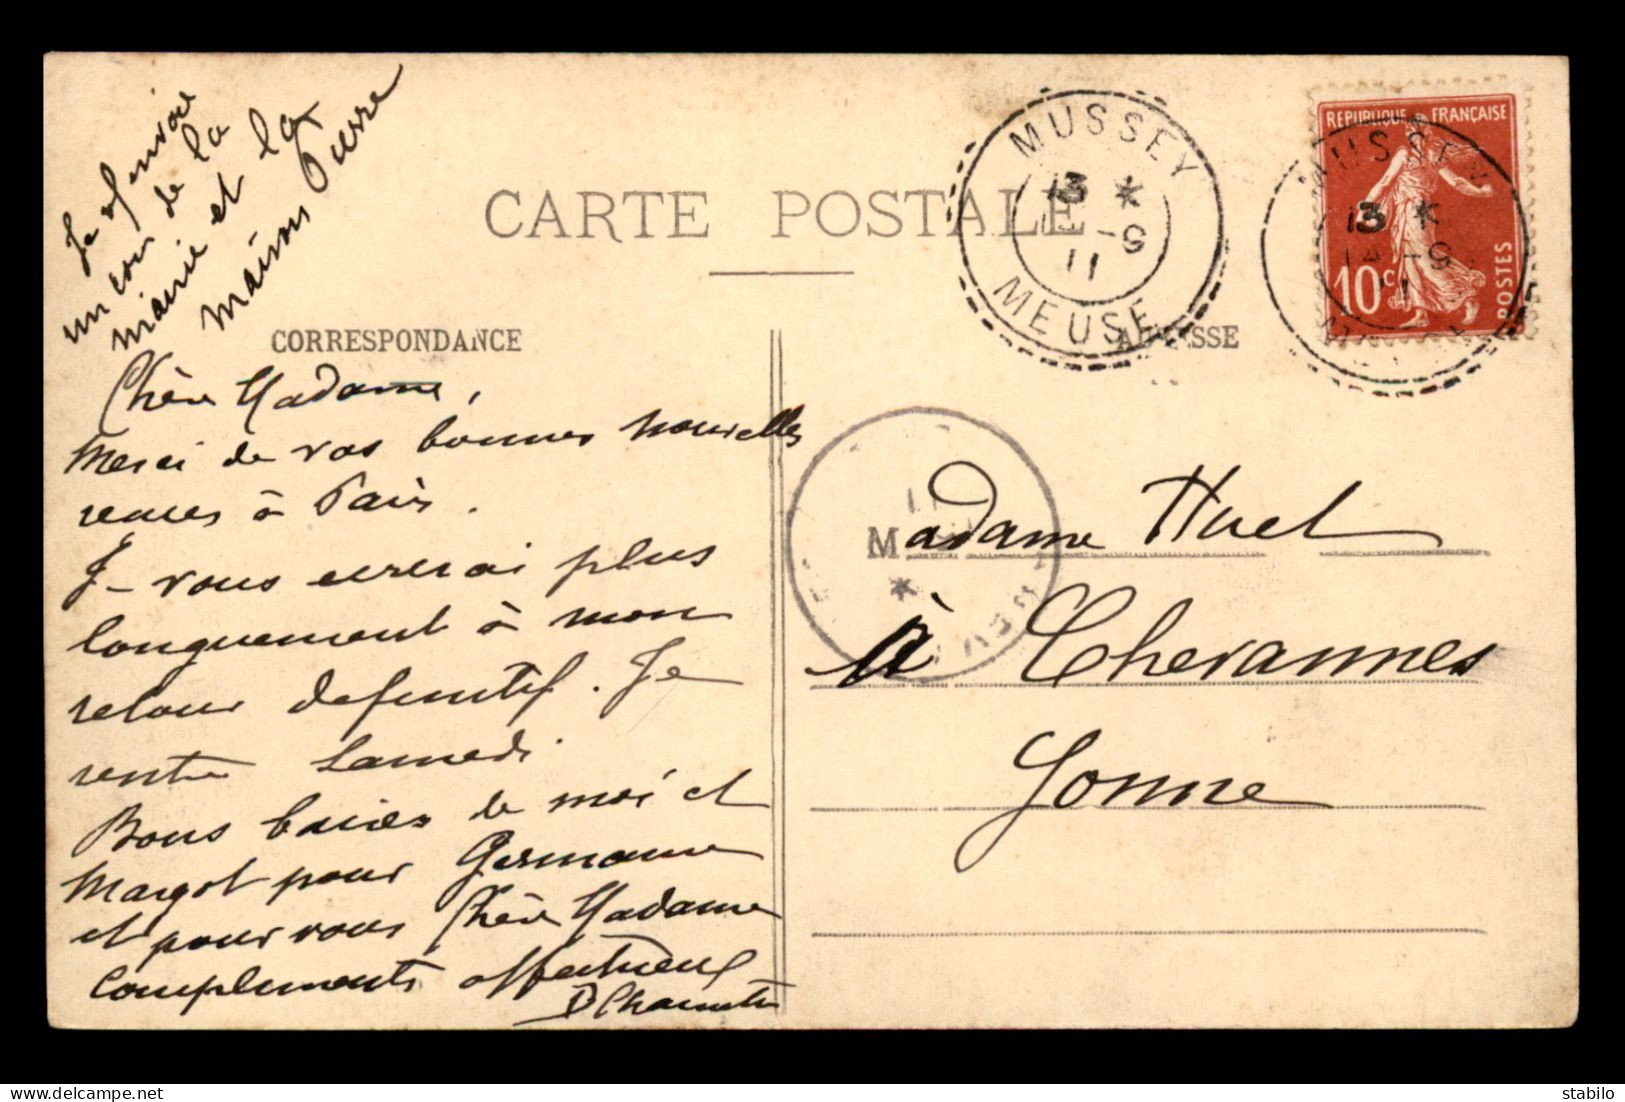 Je vs envoie
un coin de la
mairie et la
maison Pierre
CARTE POSTALE
CORRESPONDANCE
Chère Madame,
Merci de vos bonnes nouvelles
reçues à Paris.
Je vous écrirai plus
longuement à mon
retour définitif. Je
rentre Samedi
Bons baisers de moi et
Margot pour Germaine
et pour vous Chère Madame
compliments affectueux
MUSSEY
13 *
-9
11
MEUSE
REPUBLIQUE FRANÇAISE
10c
POSTES
MUSSEY
13 *
-9
11
Madame Huet
à Chevannes
Yonne
stabilo